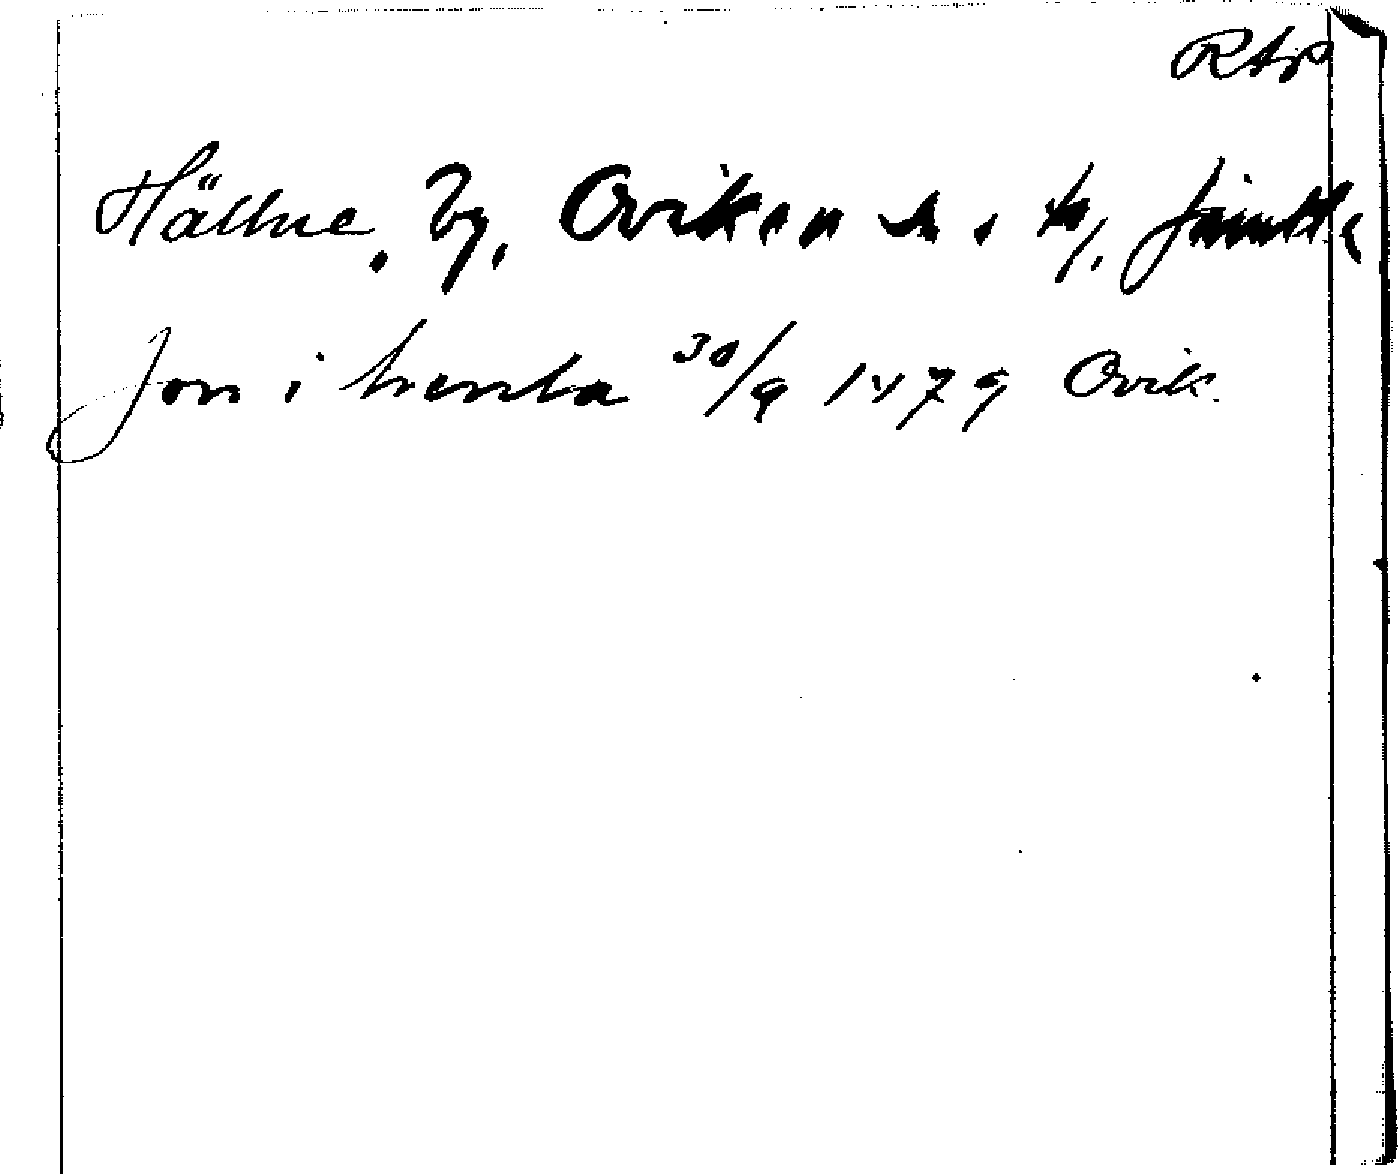 RAP
Hällne, by, Ovikens s:n, Jämtl.
Jon i 30/9 1479 Ovik.